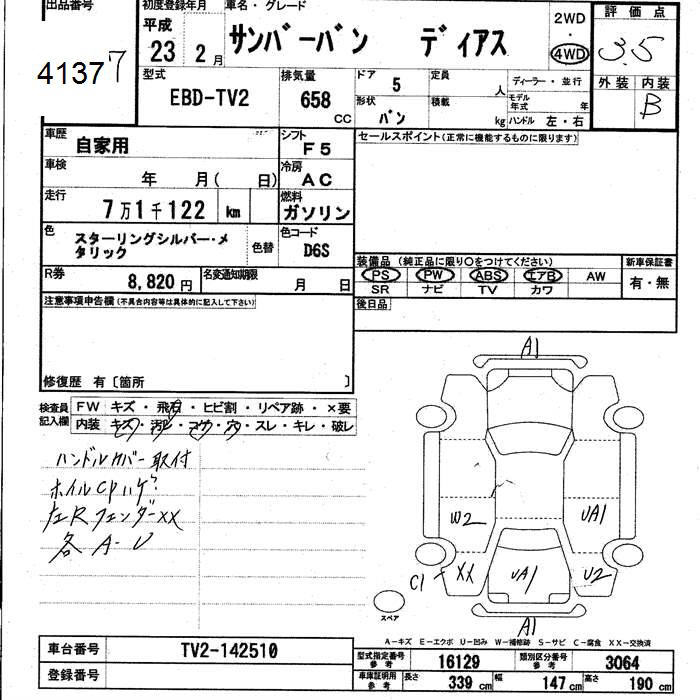 出品番号
41377
初度登録年月
平成
23 2月
車名・グレード
サンバーバン ディアス
2WD
・
4WD
評価点
3.5
外装 内装
B
型式
EBD-TV2
排気量
658
CC
ドア
5
定員
人
ディーラー・並行
形状
バン
積載
kg
モデル
年式 年
ハンドル 左・右
車歴
自家用
シフト
F5
車検
年 月( 日)
冷房
AC
走行
7万1千122 km
燃料
ガソリン
色
スターリングシルバー・メ
タリック
色替
色コード
D6S
R券
8,820円
名変通知期限
月 日
セールスポイント(正常に機能するものに限ります)
装備品(純正品に限り○をつけてください)
PS PW ABS エアB AW
SR ナビ TV カワ
新車保証書
有・無
後日品
注意事項申告欄(不具合内容等は具体的に記入して下さい)
修復歴 有〔箇所 〕
検査員
記入欄
FW キズ・飛石・ヒビ割・リペア跡・×要
内装 キズ・汚レ・コゲ・穴・スレ・キレ・破レ
ハンドルカバー取付
ホイルCPハゲ
左Rフェンダーxx
各A-U
A1
W2
UA1
C1
XX
UA1
U2
A1
スペア
A-キズ E-エクボ U-凹み W-補修跡 S-サビ C-腐食 XX-交換済
車台番号
TV2-142510
登録番号
型式指定番号
参考
16129
類別区分番号
参考
3064
車庫証明用
参考
長さ 339 cm
幅 147 cm
高さ 190 cm